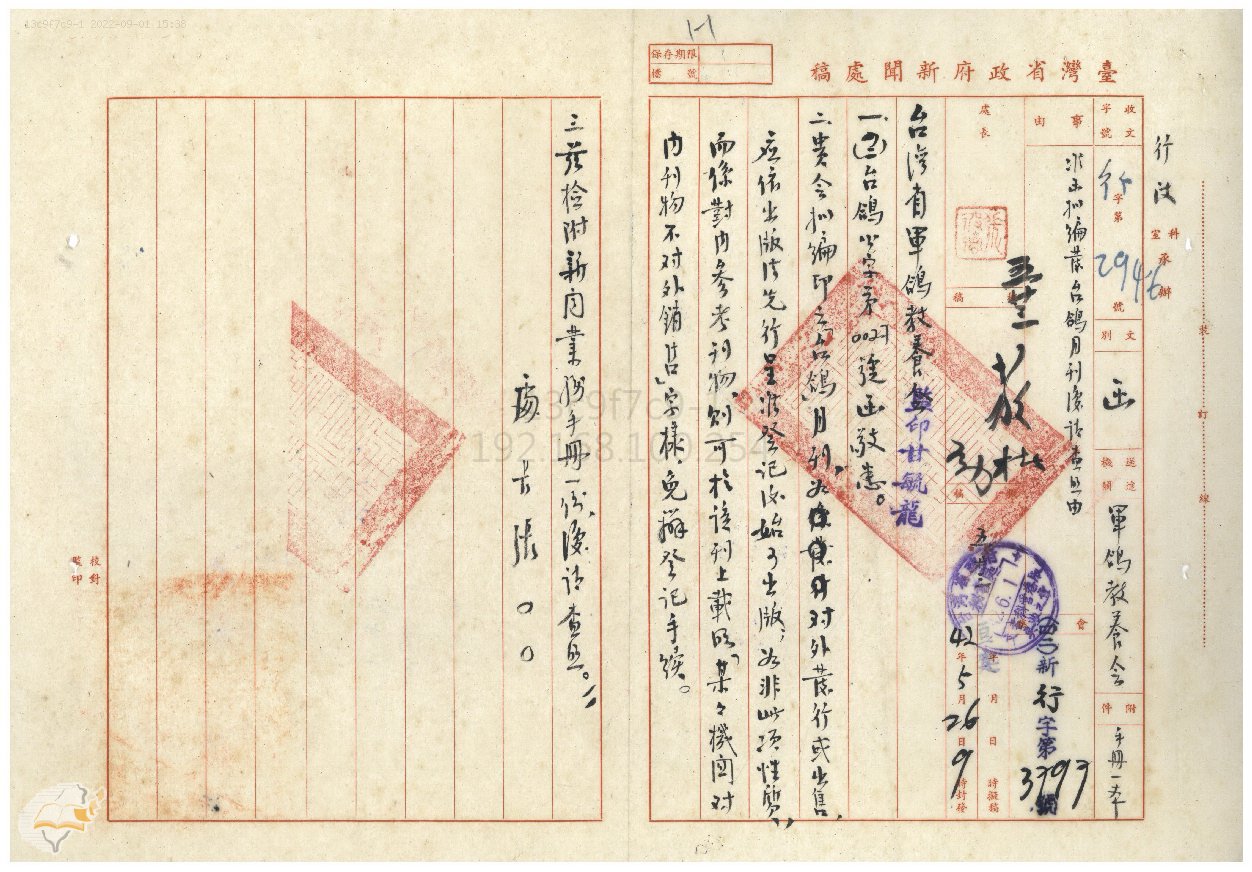 13c9f7c9-1 2022-09-01 15:38
保存期限
檔號
臺灣省政府新聞處稿
行政
科室承辦
收文字號
行字第2946號
文別
函
送達機關
軍鴿教養会
附件
手冊一本
事由
准函拟編業台鴿月刊復請查照由
處長
台湾省軍鴿教養会
監印甘毓龍
一、(42)台鴿公字第0027號函敬悉。
二、貴会拟編印之「台鴿」月刊,如對外發行或出售,
应依出版法先行呈准登記後始可出版,如非此項性質,
而係對內参考刊物,則可於該刊上載明「某々機関对
内刊物不对外銷售」字樣,免辦登記手續。
三、茲檢附新聞業務手冊一份,復請查照。
處長張○○
會
(42)新行字第3393號
42年5月26日9時封發
月日時擬稿
校對
監印
裝
訂
線
13c9f7c9-1
192.168.100.254